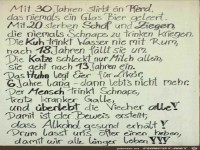 Mit 30 Jahren stirbt ein Pferd,
das niemals ein Glas Bier geleert.
Mit 20 sterben Schaf und Ziegen,
die niemals Schnaps zu trinken kriegen.
Die Kuh trinkt Wasser nie mit Rum,
nach 18 Jahren fällt sie um.
Die Katze schleckt nur Milch allein,
sie geht nach 13 Jahren ein.
Das Huhn legt Eier für Liköre
6 Jahre lang - dann lebt's nicht mehr.
Der Mensch trinkt Schnaps,
ist er Kranker Galle,
und überlebt die Viecher alle!
Damit ist der Beweis erstellt,
dass Alkohol gesund erhält!
Drum lasst uns öfter einen heben,
damit wir alle länger leben!!!